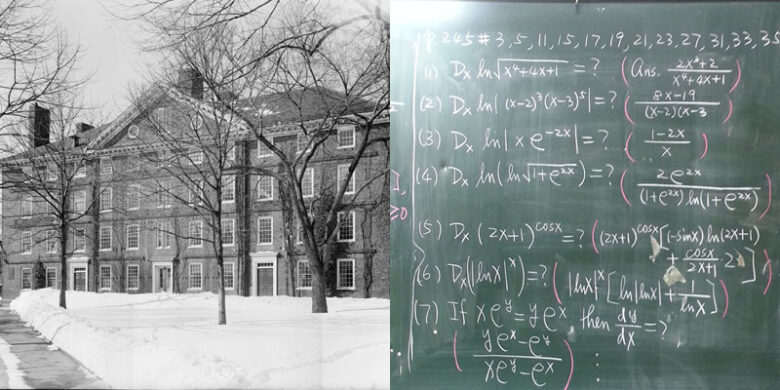 p.245 # 3, 5, 11, 15, 17, 19, 21, 23, 27, 31, 33, 35
(1) Dx ln√(x⁴+4x+1) = ? (Ans. (2x³+2)/(x⁴+4x+1))
(2) Dx ln|(x-2)³(x-3)⁵| = ? ((8x-19)/((x-2)(x-3))
(3) Dx ln|x e^(-2x)| = ? ((1-2x)/x)
(4) Dx ln(ln√(1+e^(2x))) = ? (2e^(2x)/((1+e^(2x)) ln(1+e^(2x))))
(5) Dx (2x+1)^(cosx) = ? ((2x+1)^(cosx)[(-sinx) ln(2x+1)
+ cosx/(2x+1) · 2])
(6) Dx(|lnx|^x) = ? (|lnx|^x [ln|lnx| + 1/lnx])
(7) If xe^y = ye^x, then dy/dx = ?
((ye^x - e^y)/(xe^y - e^x))
≥0